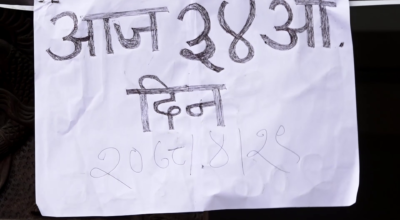 आज ३४औ.
दिन
२०७८।४।२९